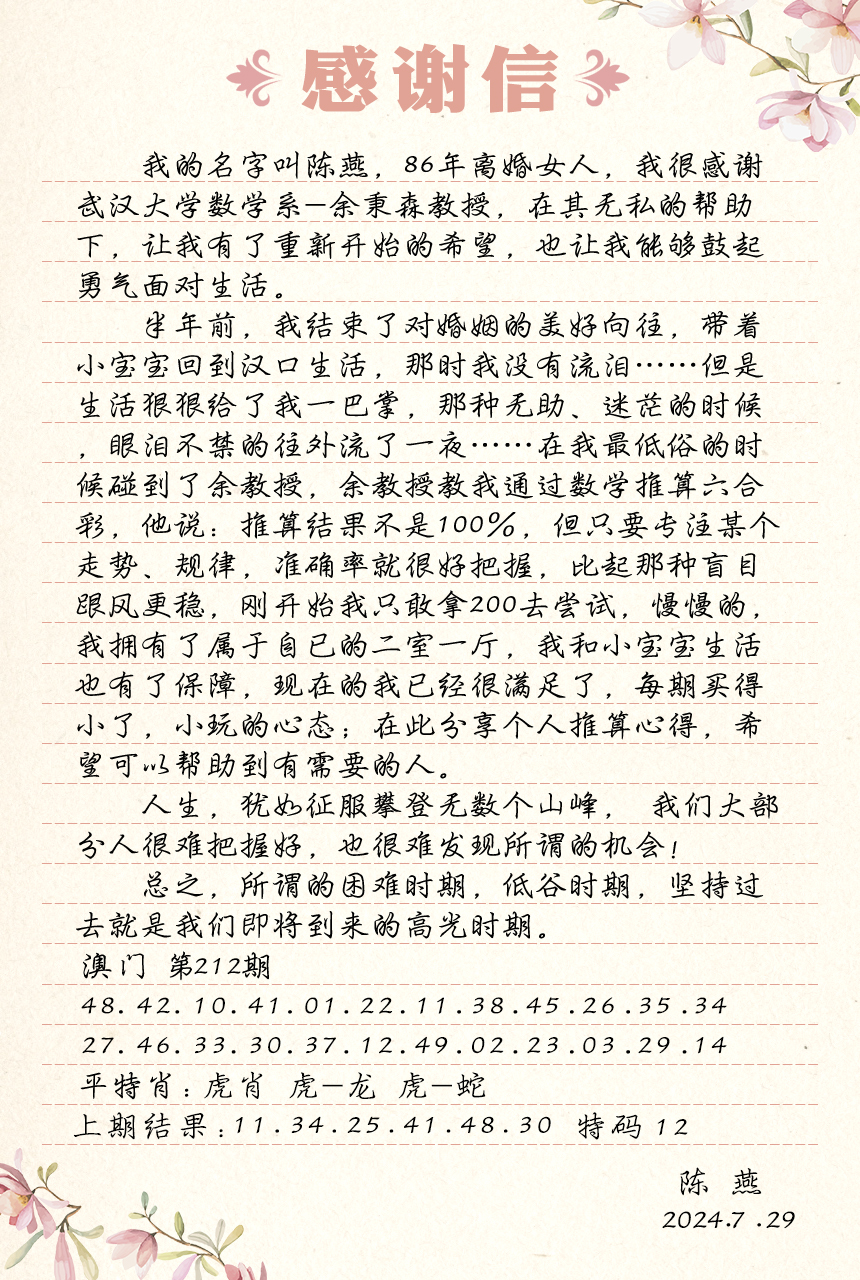 感谢信
我的名字叫陈燕，86年离婚女人，我很感谢
武汉大学数学系—余秉森教授，在其无私的帮助
下，让我有了重新开始的希望，也让我能够鼓起
勇气面对生活。
半年前，我结束了对婚姻的美好向往，带着
小宝宝回到汉口生活，那时我没有流泪……但是
生活狠狠给了我一巴掌，那种无助、迷茫的时候
，眼泪不禁的往外流了一夜……在我最低俗的时
候碰到了余教授，余教授教我通过数学推算六合
彩，他说：推算结果不是100%，但只要专注某个
走势、规律，准确率就很好把握，比起那种盲目
跟风更稳，刚开始我只敢拿200去尝试，慢慢的，
我拥有了属于自已的二室一厅，我和小宝宝生活
也有了保障，现在的我已经很满足了，每期买得
小了，小玩的心态；在此分享个人推算心得，希
望可以帮助到有需要的人。
人生，犹如征服攀登无数个山峰， 我们大部
分人很难把握好，也很难发现所谓的机会！
总之，所谓的困难时期，低谷时期，坚持过
去就是我们即将到来的高光时期。
澳门 第212期
48.42.10.41.01.22.11.38.45.26.35.34
27.46.33.30.37.12.49.02.23.03.29.14
平特肖：虎肖 虎—龙 虎—蛇
上期结果：11.34.25.41.48.30 特码 12
陈 燕
2024.7.29